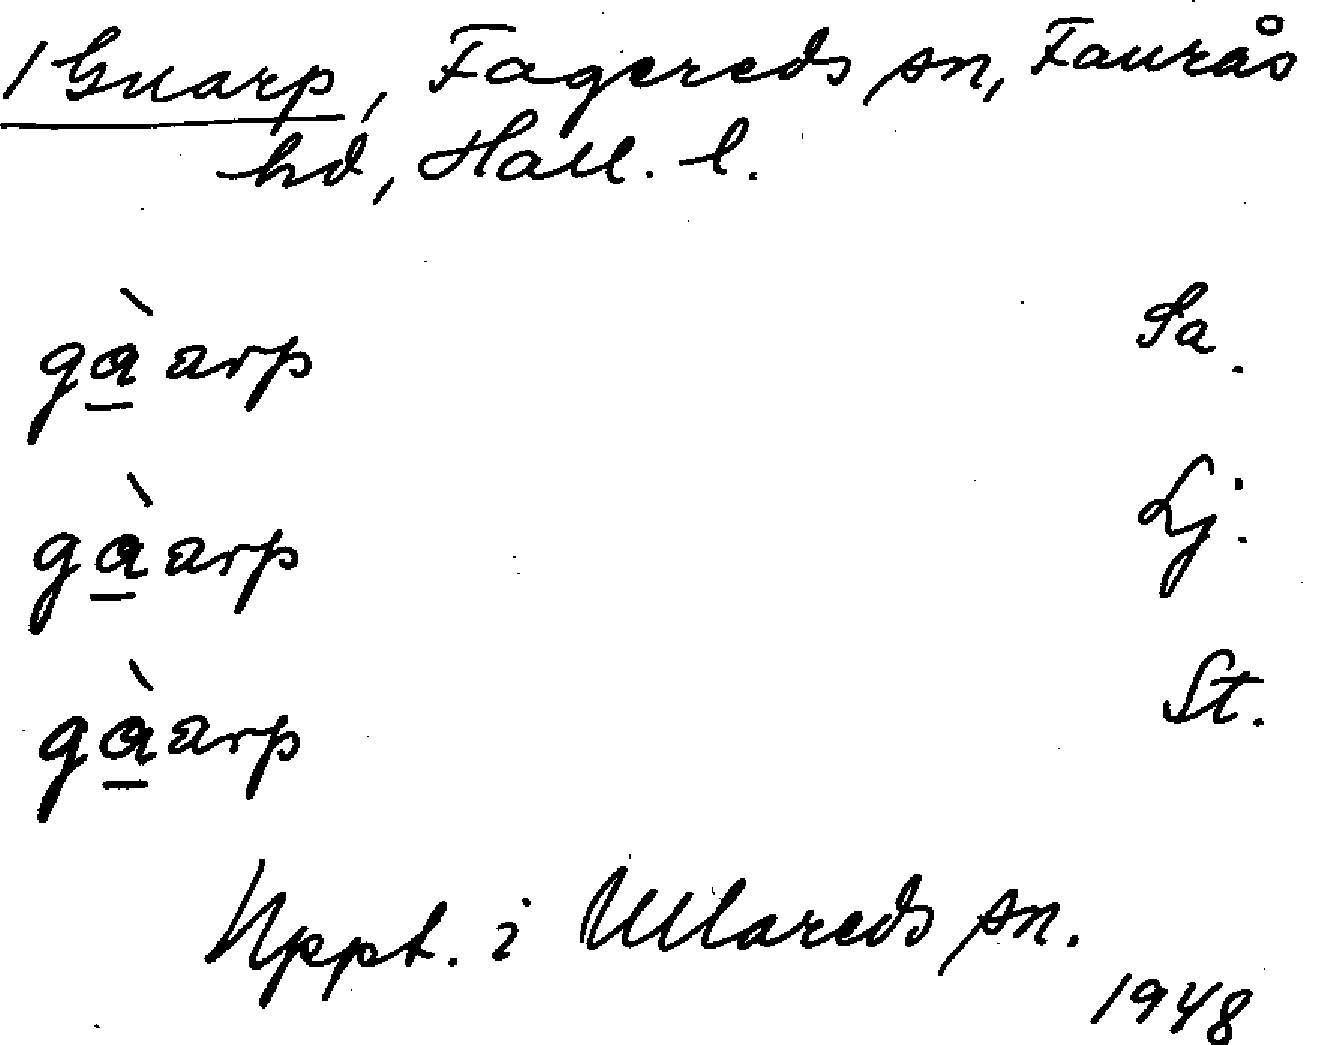 /Guarp, Fagereds sn, Faurås
hd, Hall. l.
gàarp Sa.
gàarp Lj.
gàarp St.
Uppt. i Ullareds sn.
1948